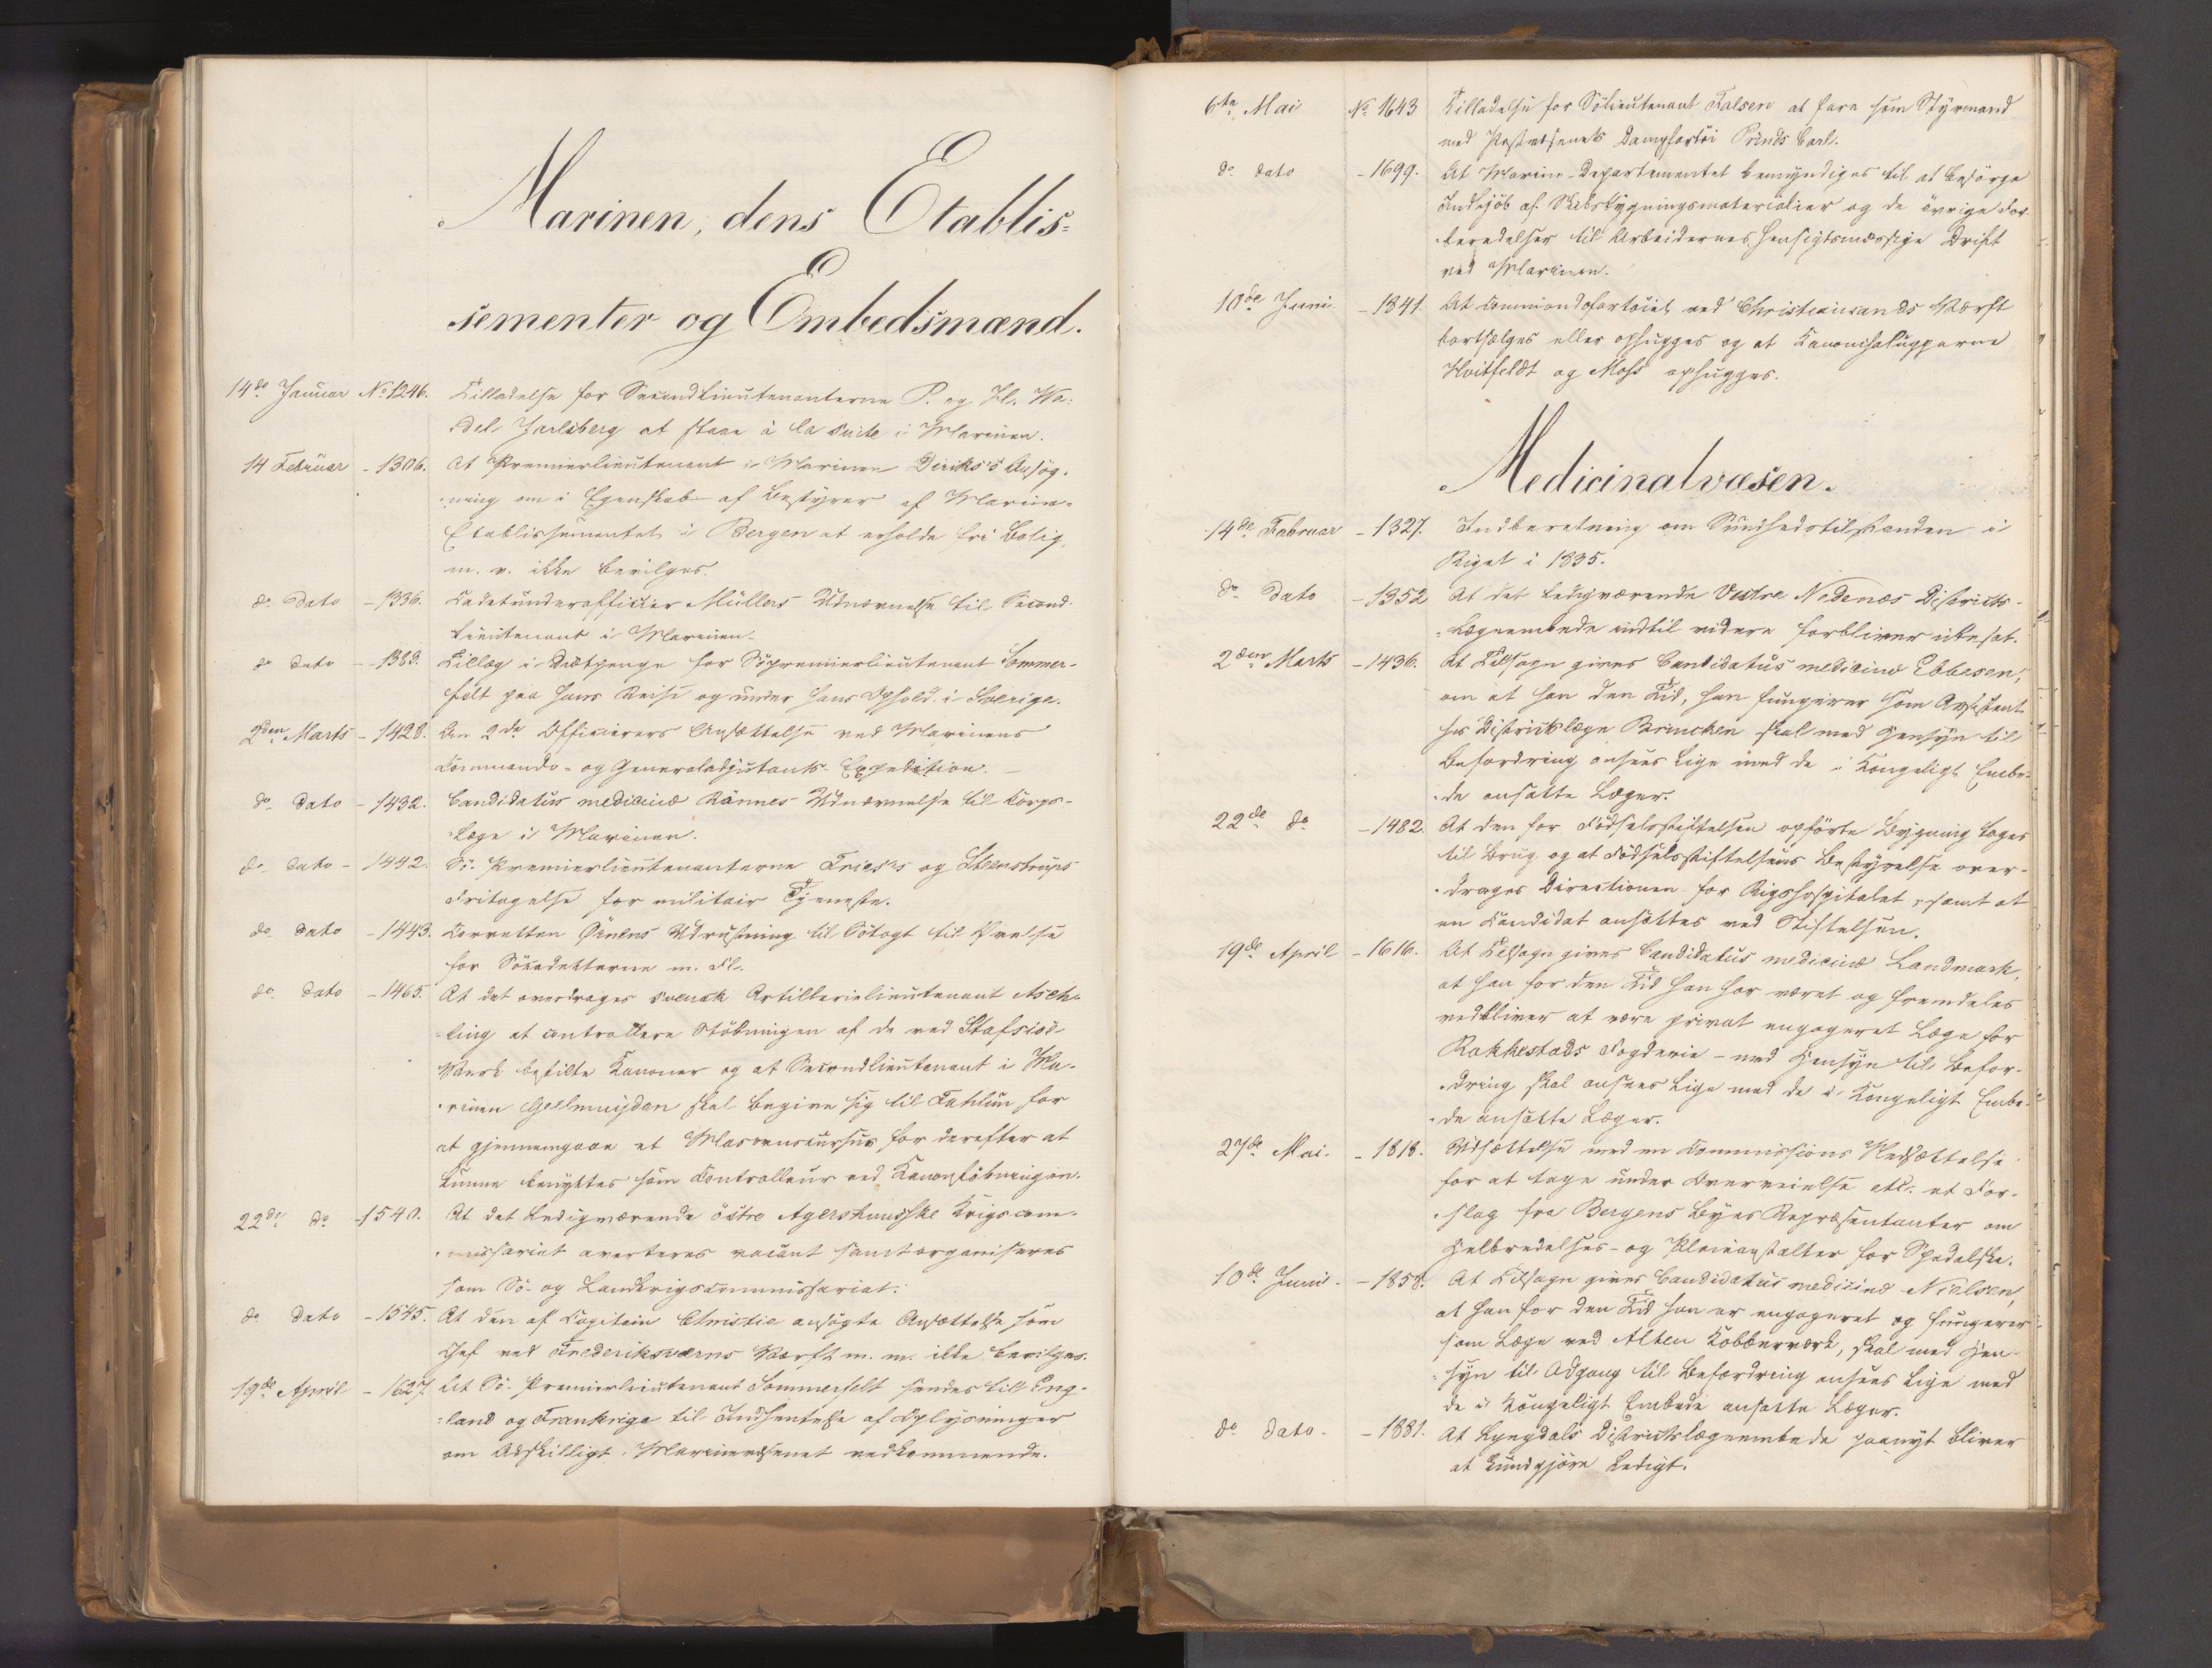 Marinen, dens Etablis=
sementer og Embedsmænd.
14de Januar No 1246. Tilladelse for Secondlieutenanterne P. og H. We-
del Jarlsberg at staae à la suite i Marinen.
14 Februar - 1306. At Premierlieutenant i Marinen Diriks's Ansøg-
ning om i Egenskab af Bestyrer af Marine-
Etablissementet i Bergen at erholde fri Bolig
m. v. ikke bevilges.
do Dato - 1336. Cadetunderofficier Müllers Udnævnelse til Second-
lieutenant i Marinen.
do Dato - 1383. Tillæg i Diætpenge for Søpremierlieutenant Sommer-
felt paa hans Reise og under hans Ophold i Sverige.
2den Marts - 1428. An 2de Officierers Ansættelse ved Marinens
Commando- og Generaladjutants-Expedition.
do Dato - 1432. Candidatus medicinæ Rännes Udnævnelse til Corps-
læge i Marinen.
do Dato - 1442. Sö-Premierlieutenanterne Frieks og Steenstrups
Fritagelse for militair Tjeneste.
do Dato - 1443. Corvetten Ørnens Udrustning til Søtogt til Øvelse
for Søcadetterne m. Fl.
do Dato - 1465. At det overdrages svensk Artillerielieutenant Asch-
ling at controllere Støbningen af de ved Stafsiöe
Værk bestilte Kanoner og at Secondlieutenant i Ma-
rinen Geelmuyden skal begive sig til Fahlun for
at gjennemgaae et Masovnscursus for derefter at
kunne benyttes som Controlleur ved Kanonstøbningen.
22de do - 1540. At det ledigværende östre Agershuusske Krigscom-
missariat averteres vacant samt organiseres
som Sö- og Landkrigscommissariat.
do Dato - 1545. At den af Capitain Christie ansøgte Ansættelse som
Chef ved Frederiksværns Værft m. m. ikke bevilges.
19de April - 1627. At Sö-Premierlieutenant Sommerfelt sendes til Eng-
land og Frankrige til Indhentelse af Oplysninger
om Adskilligt Marinevæsenet vedkommende.
6te Mai No 1643 Tilladelse for Sölieutenant Falsen at fare som Styrmand
med Postvæsenets Dampfartøi Prinds Carl.
do Dato - 1699. At Marine-Departementet bemyndiges til at besørge
Indkjøb af Skibsbygningsmaterialier og de øvrige For-
beredelser til Arbeidernes hensigtsmæssige Drift
ved Marinen.
10de Juni - 1841. At Commandofartøiet ved Christiansands Værft
bortsælges eller ophugges og at Kanonchalupperne
Hvitfeldt og Moss ophugges.
Medicinalvæsen.
14de Februar - 1327. Indberetning om Sundhedstilstanden i
Riget i 1835.
do Dato - 1352 At det ledigværende Vestre Nedenæs Districts-
Lægeembede indtil videre forbliver ubesat.
2den Marts - 1436. At Tilsagn gives Candidatus medicinæ Ebbesen,
om at han den Tid, han fungerer som Assistent
hos Districtslæge Brincken skal med Hensyn til
Befordring ansees lige med de i Kongeligt Embe-
de ansatte Læger.
22de do - 1482. At den for Fødselsstiftelsen opførte Bygning tages
til Brug og at Fødselsstiftelsens Bestyrelse over-
drages Directionen for Rigshospitalet, samt at
en Candidat ansættes ved Stiftelsen.
19de April - 1616. At Tilsagn gives Candidatus medicinæ Landmark,
at han for den Tid han har været og fremdeles
vedbliver at være privat engageret Læge for
Rakkestads Fogderie - med Hensyn til Befor-
dring skal ansees lige med de i Kongeligt Embe-
de ansatte Læger.
27de Mai. - 1818. Udsættelse med en Commissions Nedsættelse
for at tage under Overveielse etc. et For-
slag fra Bergens Byes Repræsentanter om
Helbredelses- og Pleieanstalter for Spedalske.
10de Juni - 1858. At Tilsagn gives Candidatus medicinæ Nielsen,
at han for den Tid han er engageret og fungerer
som Læge ved Alten Kobberværk, skal med Hen-
syn til Adgang til Befordring ansees lige med
de i Kongeligt Embede ansatte Læger.
do Dato. - 1881. At Lyngdals Districtslægeembede paanyt bliver
at kundgjøre ledigt.